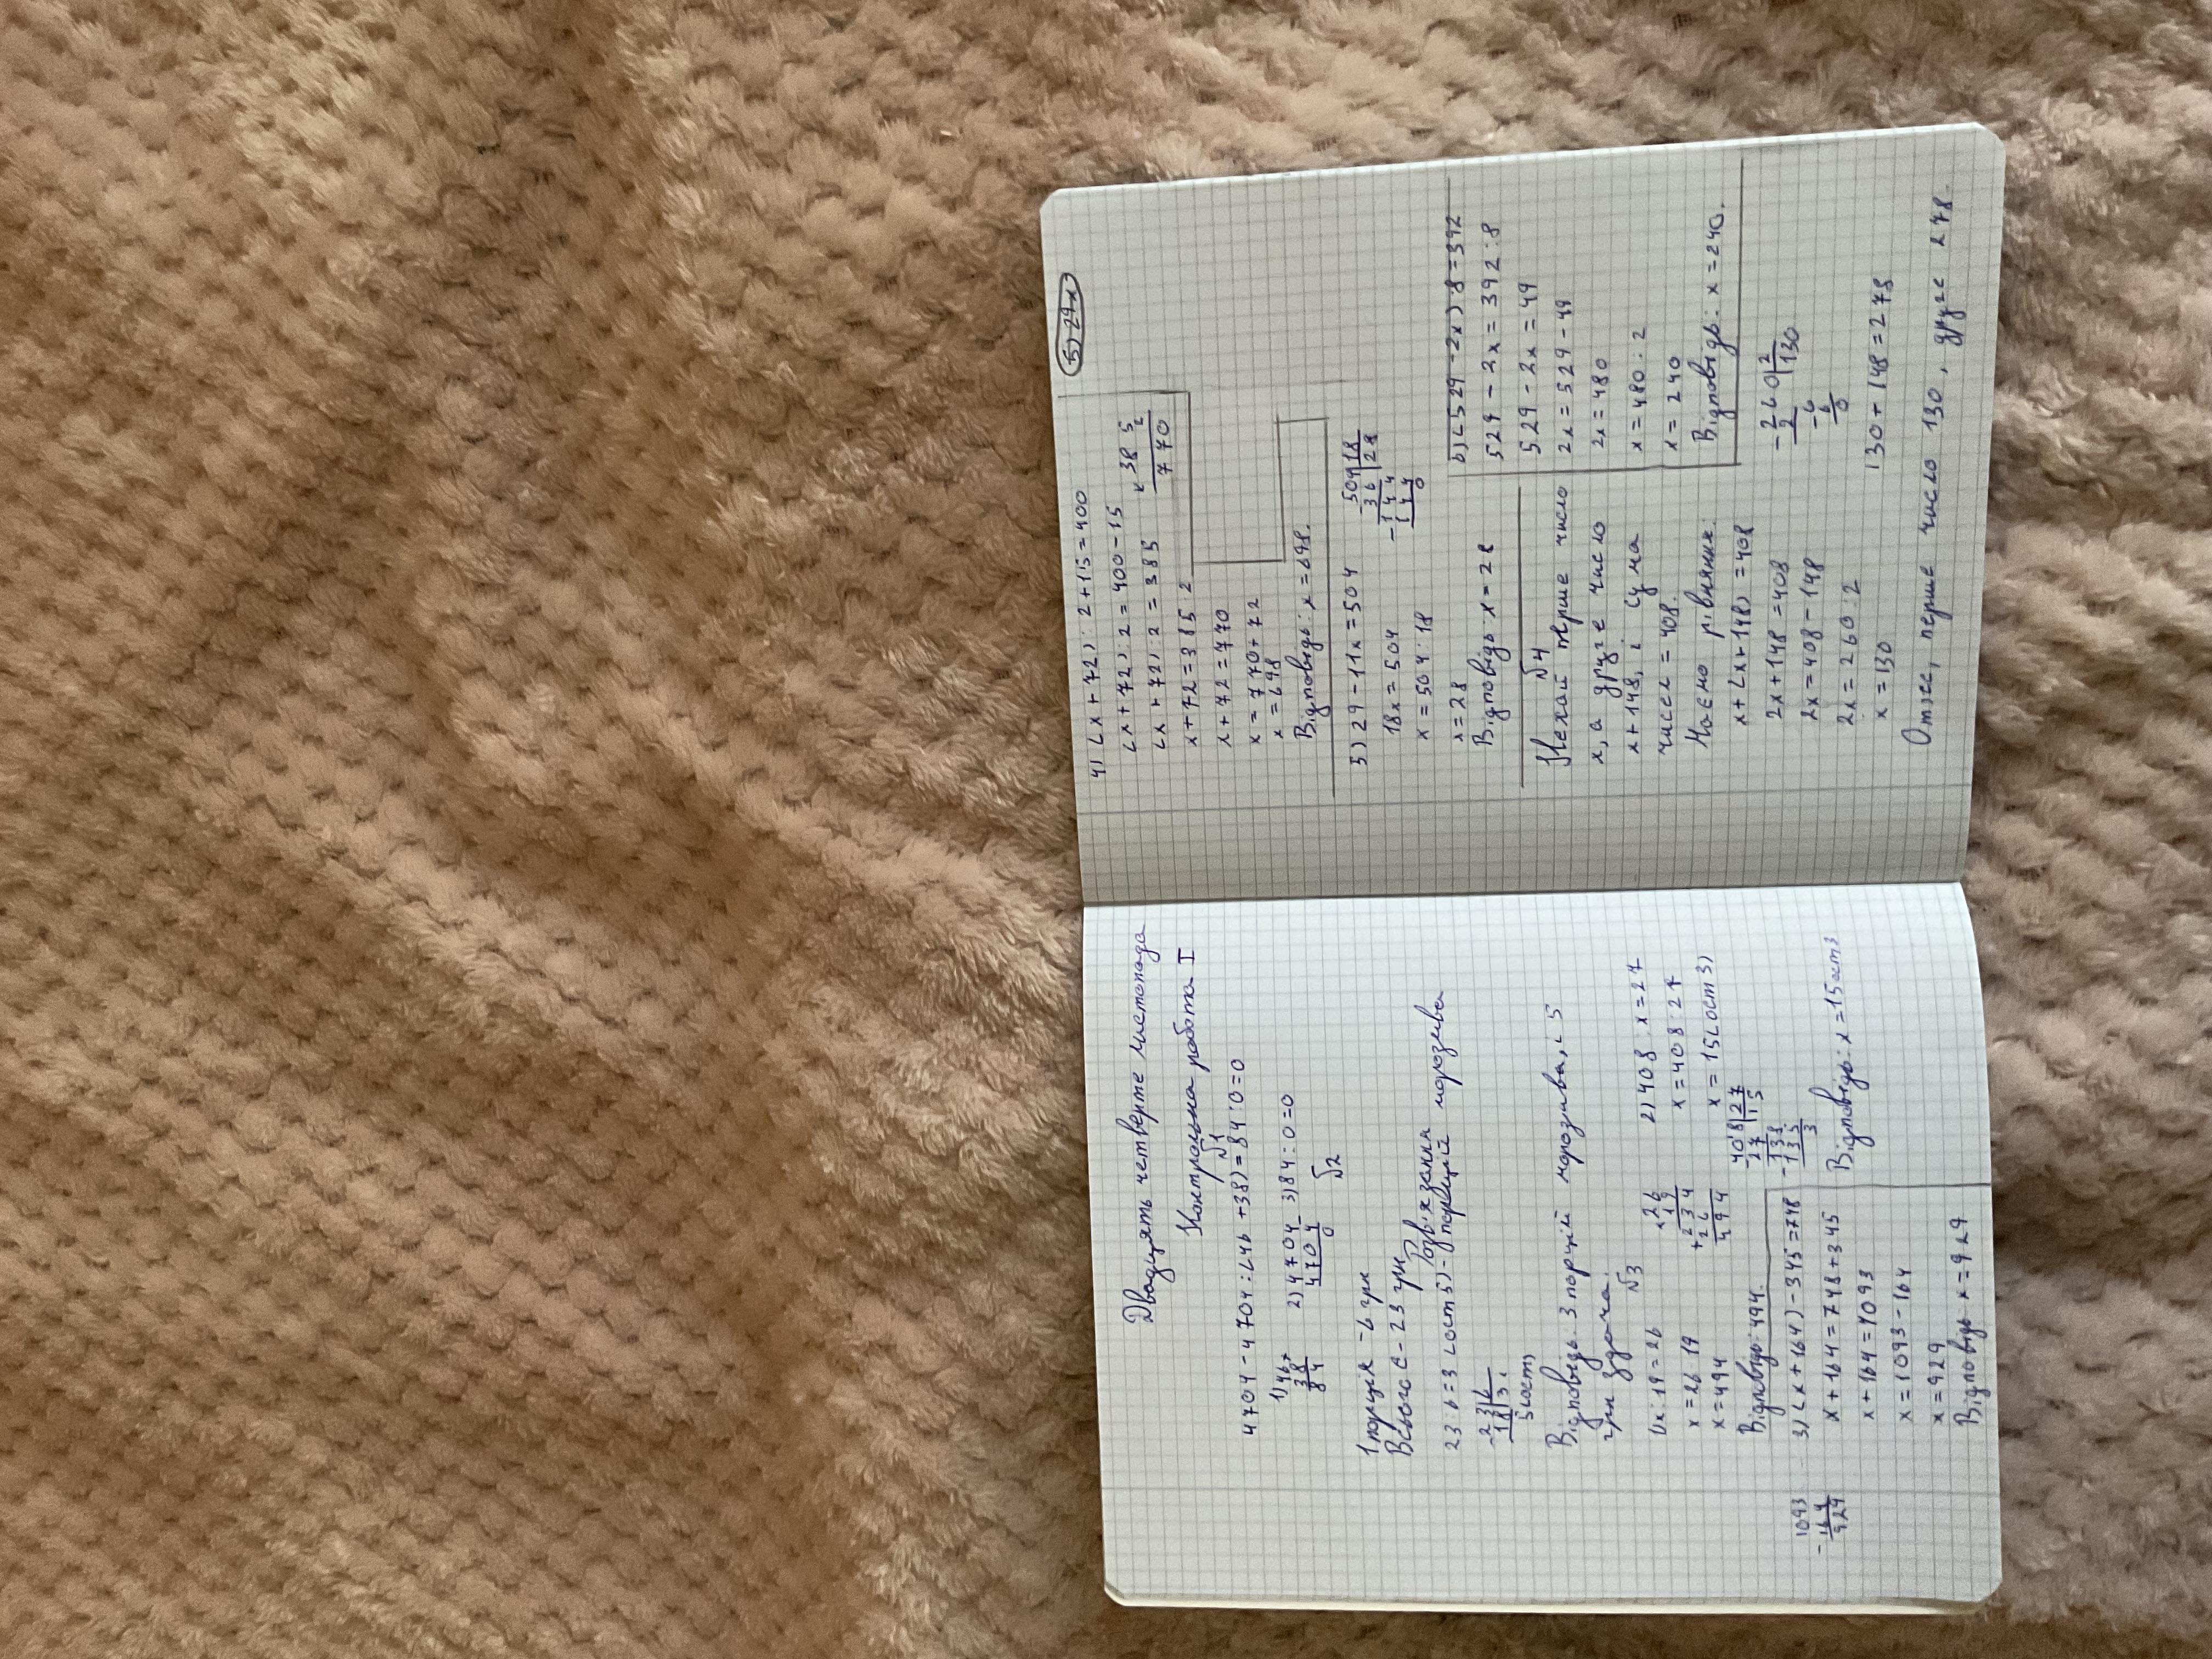 Двадцять четверте листопада
Контрольна робота I
√1
4704 - 4704 : (46 + 38) = 84 : 0 = 0
1) 46+
38
84
2) 4704
4704
0
3) 84 : 0 = 0
√2
1 порція - 6 грн
Всього є - 23 грн
Розв'язання
23 : 6 = 3 (ост 5) - порцій морозива
- 23|6
18|3
5(ост)
Відповідь: 3 порцій морозива, і 5
грн здача.
√3
1) x : 19 = 26
x = 26 · 19
x = 494
Відповідь: 494.
×26
19
+234
26
494
2) 408 : x = 27
x = 408 : 27
x = 15 (ост 3)
- 408|27
27|15
- 138
135
3
Відповідь: x = 15 ост 3
3) (x + 164) - 345 = 748
x + 164 = 748 + 345
x + 164 = 1093
x = 1093 - 164
x = 929
Відповідь x = 929
- 1093
164
929
5) 29x
4) (x + 72) : 2 + 15 = 400
(x + 72) : 2 = 400 - 15
(x + 72) : 2 = 385
x + 72 = 385 · 2
x + 72 = 770
x = 770 + 72
x = 698
Відповідь: x = 698.
× 385
2
770
5) 29 - 11x = 504
18x = 504
x = 504 : 18
x = 28
Відповідь: x = 28
504|18
36|28
- 144
144
0
6) (529 - 2x) · 8 = 392
529 - 2x = 392 : 8
529 - 2x = 49
2x = 529 - 49
2x = 480
x = 480 : 2
x = 240
Відповідь: x = 240.
√4
Нехай перше число
x, а друге число
x + 148, і сума
чисел = 408.
Маємо рівняння:
x + (x + 148) = 408
2x + 148 = 408
2x = 408 - 148
2x = 260 : 2
x = 130
- 260|2
2|130
- 6
6
0
130 + 148 = 278
Отже, перше число 130, друге 278.